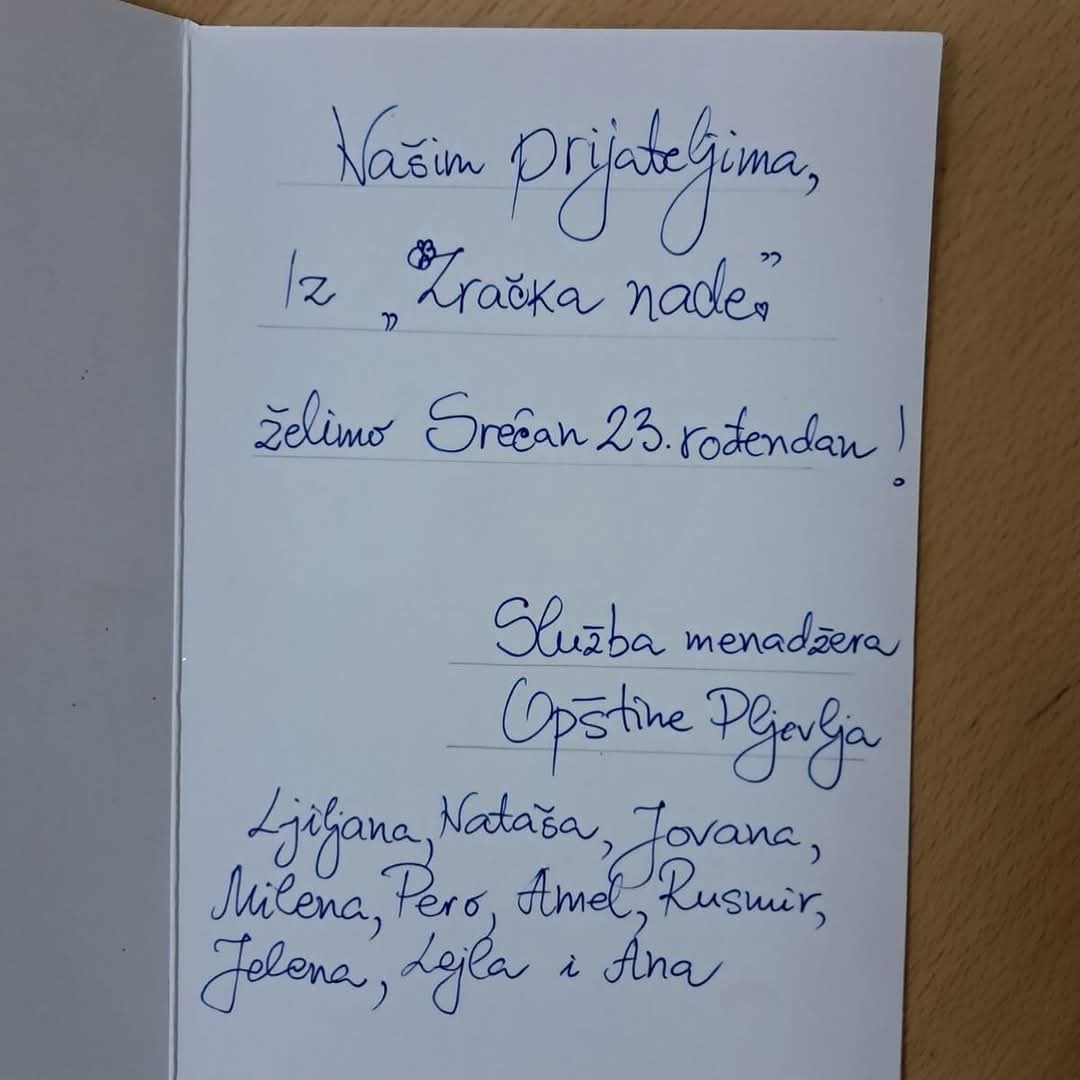 Našim prijateljima,
Iz „Zračka nade”
želimo Srećan 23. rođendan!
Služba menadžera
Opštine Pljevlja
Ljiljana, Nataša, Jovana,
Milena, Pero, Amel, Rusmir,
Jelena, Lejla i Ana